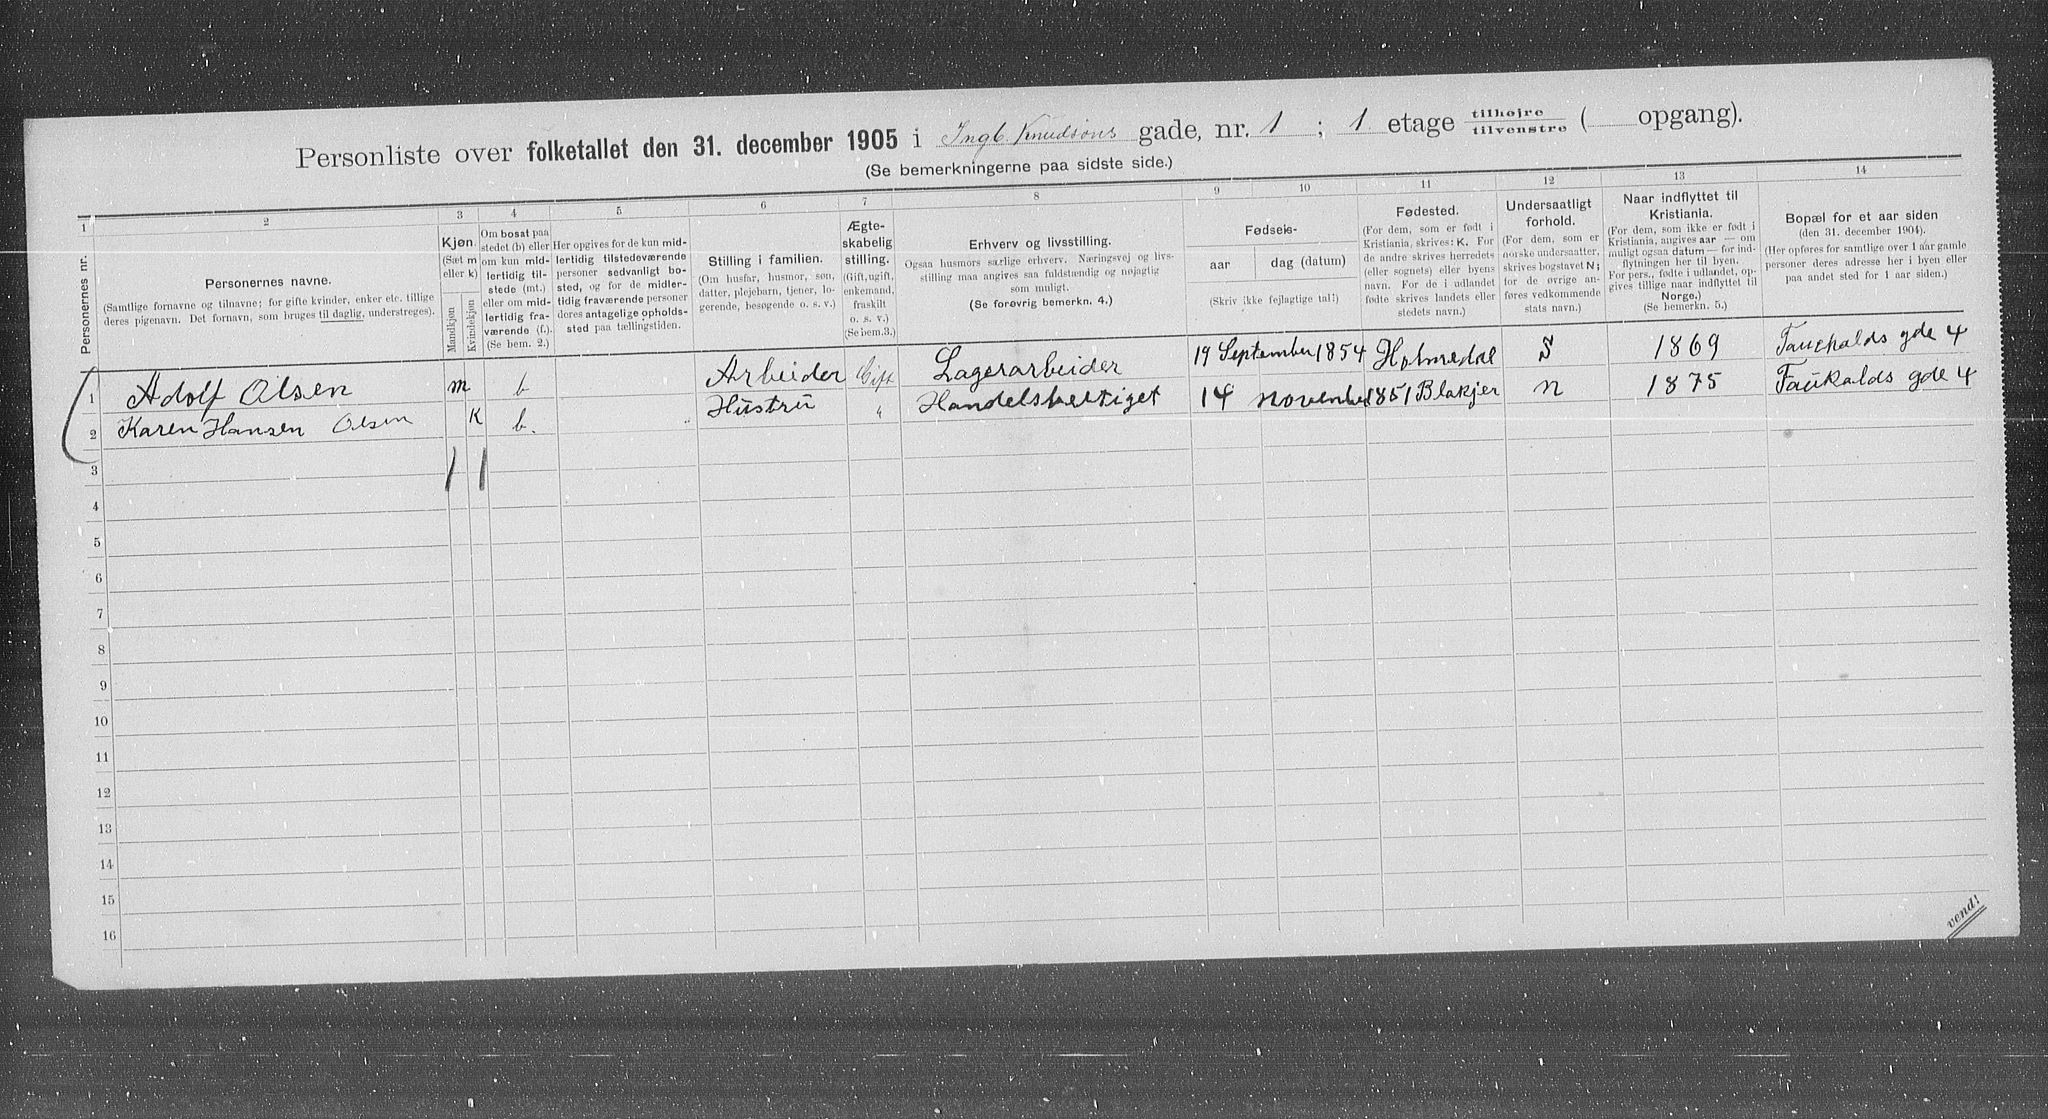 Personliste over folketallet den 31. december 1905 i Ingb. Knudsöns gade, nr. 1 ; 1 etage tilhøjre / tilvenstre ( opgang).
(Se bemerkningerne paa sidste side.)
1 2 3 4 5 6 7 8 9 10 11 12 13 14
Personernes nr.
Personernes navne.
(Samtlige fornavne og tilnavne; for gifte kvinder, enker etc. tillige
deres pigenavn. Det fornavn, som bruges til daglig, understreges).
Kjøn.
(Sæt m
eller k)
Mandkjøn
Kvindekjøn
Om bosat paa
stedet (b) eller
om kun mid-
lertidig til-
stede (mt.)
eller om mid-
lertidig fra-
værende (f.).
(Se bem. 2.)
Her opgives for de kun mid-
lertidig tilstedeværende
personer sedvanlig bo-
sted, og for de midler-
tidig fraværende personer
deres antagelige opholds-
sted paa tællingstiden.
Stilling i familien.
(Om husfar, husmor, søn,
datter, plejebarn, tjener, lo-
gerende, besøgende o. s. v.)
Ægte-
skabelig
stilling.
(Gift, ugift,
enkemand,
fraskilt
o. s. v.)
(Se bem. 3.)
Erhverv og livsstilling.
Ogsaa husmors særlige erhverv. Næringsvej og livs-
stilling maa angives saa fuldstændig og nøjagtig
som muligt.
(Se forøvrig bemerkn. 4.)
Fødsels-
aar
dag (datum)
(Skriv ikke fejlagtige tal!)
Fødested.
(For dem, som er født i
Kristiania, skrives: K. For
de andre skrives herredets
(eller sognets) eller byens
navn. For de i udlandet
fødte skrives landets eller
stedets navn.)
Undersaatligt
forhold.
(For dem, som er
norske undersaatter,
skrives bogstavet N;
for de øvrige an-
føres vedkommende
stats navn.)
Naar indflyttet til
Kristiania.
(For dem, som ikke er født i
Kristiania, angives aar — om
muligt ogsaa datum — for ind-
flytningen her til byen.
For pers., fødte i udlandet, op-
gives tillige naar indflyttet til
Norge.)
(Se bemerkn. 5.)
Bopæl for et aar siden
(den 31. december 1904).
(Her opføres for samtlige over 1 aar gamle
personer deres adresse her i byen eller
paa andet sted for 1 aar siden.)
1 Adolf Olsen m b Arbeider Gift Lagerarbeider 19 September 1854 Holmedal S 1869 Fauchalds gde 4
2 Karen Hansen Olsen K b. Hustru " 14 November 1851 Blakjer n 1875 Faukalds gde 4
3 1 1
4
5
6
7
8
9
10
11
12
13
14
15
16
vend!